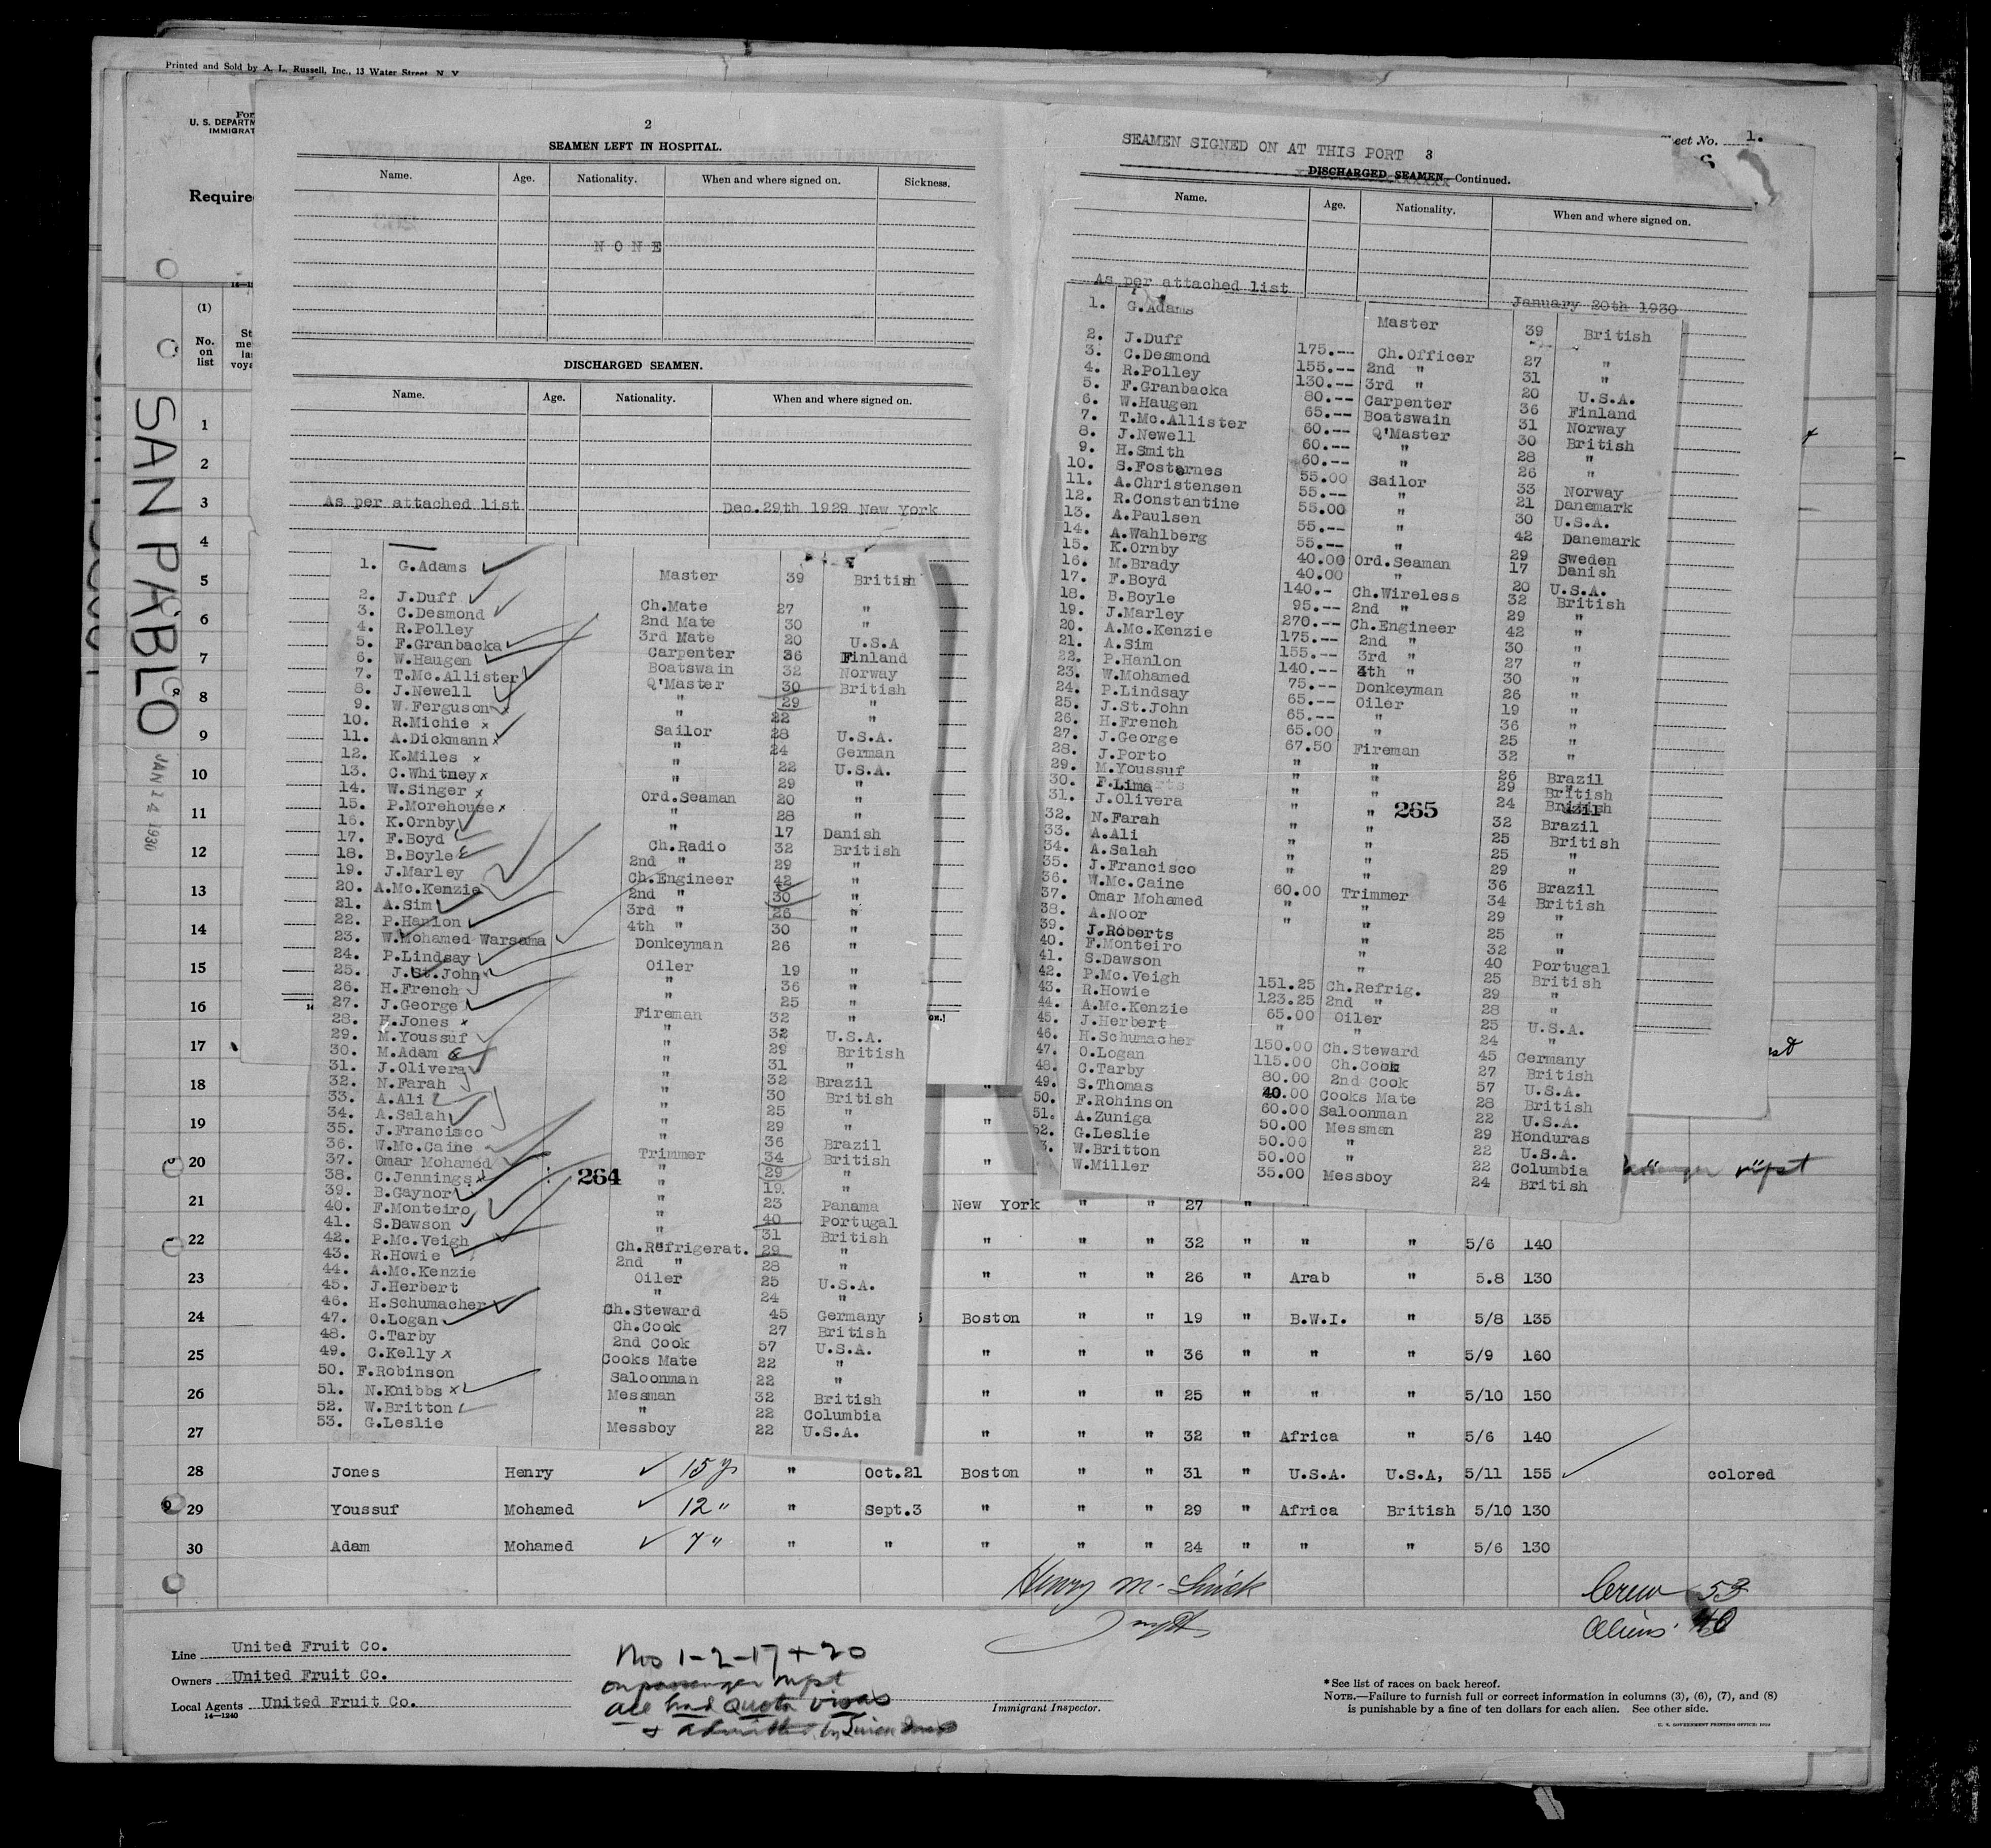 Printed and Sold by A. L. Russell, Inc., 13 Water Street, N. Y.
For
U. S. DEPARTM
IMMIGRAT
Require
(1)
No. on list
SAN PABLO
JAN 14 1930
2
SEAMEN LEFT IN HOSPITAL.
Name. Age. Nationality. When and where signed on. Sickness.
NONE
DISCHARGED SEAMEN.
Name. Age. Nationality. When and where signed on.
As per attached list Dec.29th 1929 New York
1. G.Adams Master 39 British
2. J.Duff Ch.Mate 27 "
3. C.Desmond 2nd Mate 30 "
4. R.Polley 3rd Mate 20 U.S.A
5. F.Granbacka Carpenter 36 Finland
6. W.Haugen Boatswain 32 Norway
7. T.Mc.Allister Q'Master 30 British
8. J.Newell " 29 "
9. W.Ferguson x " 22 "
10. R.Michie x Sailor 28 U.S.A.
11. A.Dickmann x " 24 German
12. K.Miles x " 22 U.S.A.
13. C.Whitney x " 29 "
14. W.Singer x Ord.Seaman 20 "
15. P.Morehouse x " 28 "
16. K.Ornby " 17 Danish
17. F.Boyd Ch.Radio 32 British
18. B.Boyle 2nd " 29 "
19. J.Marley Ch.Engineer 42 "
20. A.Mc.Kenzie 2nd " 30 "
21. A.Sim 3rd " 26 "
22. P.Hanlon 4th " 30 "
23. W.Mohamed Warsama Donkeyman 26 "
24. P.Lindsay Oiler 19 "
25. J.St.John " 36 "
26. H.French " 25 "
27. J.George Fireman 32 "
28. H.Jones x " 32 U.S.A.
29. M.Youssuf " 29 British
30. M.Adam " 31 "
31. J.Olivera " 32 Brazil
32. N.Farah " 30 British
33. A.Ali " 25 "
34. A.Salah " 29 "
35. J.Francisco " 36 Brazil
36. W.Mc.Caine Trimmer 34 British
37. Omar Mohamed " 29 "
38. C.Jennings x " 19 "
39. B.Gaynor " 23 Panama
40. F.Monteiro " 40 Portugal
41. S.Dawson " 31 British
42. P.Mc.Veigh Ch.Refrigerat. 29 "
43. R.Howie 2nd " 28 "
44. A.Mc.Kenzie Oiler 25 U.S.A.
45. J.Herbert " 24 "
46. H.Schumacher Ch.Steward 45 Germany
47. O.Logan Ch.Cook 27 British
48. C.Tarby 2nd Cook 57 U.S.A.
49. C.Kelly x Cooks Mate 22 "
50. F.Robinson Saloonman 22 "
51. N.Knibbs x Messman 32 British
52. W.Britton " 22 Columbia
53. G.Leslie Messboy 22 U.S.A.
264
eet No. 1.
SEAMEN SIGNED ON AT THIS PORT 3
DISCHARGED SEAMEN—Continued.
Name. Age. Nationality. When and where signed on.
As per attached list January 20th 1930
1. G.Adams Master 39 British
2. J.Duff 175.-- Ch.Officer 27 "
3. C.Desmond 155.-- 2nd " 31 "
4. R.Polley 130.-- 3rd " 20 U.S.A.
5. F.Granbacka 80.-- Carpenter 36 Finland
6. W.Haugen 65.-- Boatswain 31 Norway
7. T.Mc.Allister 60.-- Q'Master 30 British
8. J.Newell 60.-- " 28 "
9. H.Smith 60.-- " 26 "
10. S.Fosternes 55.00 Sailor 33 Norway
11. A.Christensen 55.-- " 21 Danemark
12. R.Constantine 55.00 " 30 U.S.A.
13. A.Paulsen 55.-- " 42 Danemark
14. A.Wahlberg 55.-- " 29 Sweden
15. K.Ornby 40.00 Ord.Seaman 17 Danish
16. M.Brady 40.00 " 20 U.S.A.
17. F.Boyd 140.- Ch.Wireless 32 British
18. B.Boyle 95.-- 2nd " 29 "
19. J.Marley 270.-- Ch.Engineer 42 "
20. A.Mc.Kenzie 175.-- 2nd " 30 "
21. A.Sim 155.-- 3rd " 27 "
22. P.Hanlon 140.-- 4th " 30 "
23. W.Mohamed 75.-- Donkeyman 26 "
24. P.Lindsay 65.-- Oiler 19 "
25. J.St.John 65.-- " 36 "
26. H.French 65.00 " 25 "
27. J.George 67.50 Fireman 32 "
28. J.Porto " " 26 Brazil
29. M.Youssuf " " 29 British
30. F.Lima " " 24
31. J.Olivera " " 32 Brazil
32. N.Farah " " 25 British
33. A.Ali " " 25 "
34. A.Salah " " 29 "
35. J.Francisco " " 36 Brazil
36. W.Mc.Caine 60.00 Trimmer 34 British
37. Omar Mohamed " " 29 "
38. A.Noor " " 25 "
39. J.Roberts " 32 "
40. F.Monteiro " 40 Portugal
41. S.Dawson " 25 British
42. P.Mc.Veigh 151.25 Ch.Refrig. 29 "
43. R.Howie 123.25 2nd " 28 "
44. A.Mc.Kenzie 65.00 Oiler 25 U.S.A.
45. J.Herbert " " 24 "
46. H.Schumacher 150.00 Ch.Steward 45 Germany
47. O.Logan 115.00 Ch.Cook 27 British
48. C.Tarby 80.00 2nd Cook 57 U.S.A.
49. S.Thomas 40.00 Cooks Mate 28 British
50. F.Rohinson 60.00 Saloonman 22 U.S.A.
51. A.Zuniga 50.00 Messman 29 Honduras
52. G.Leslie 50.00 " 22 U.S.A.
3. W.Britton 50.00 " 22 Columbia
W.Miller 35.00 Messboy 24 British
265
1
2
3
4
5
6
7
8
9
10
11
12
13
14
15
16
17
18
19
20
21 New York " " 27 "
22 " " " 32 " " " 5/6 140
23 " " " 26 " Arab " 5.8 130
24 Boston " " 19 " B.W.I. " 5/8 135
25 " " " 36 " " " 5/9 160
26 " " " 25 " " " 5/10 150
27 " " " 32 " Africa " 5/6 140
28 Jones Henry 15 y " Oct.21 Boston " " 31 " U.S.A. U.S.A, 5/11 155 colored
29 Youssuf Mohamed 12 " " Sept.3 " " " 29 " Africa British 5/10 130
30 Adam Mohamed 7 " " " " " " 24 " " " 5/6 130
Crew 53
Aliens 40
Line United Fruit Co.
Owners United Fruit Co.
Local Agents United Fruit Co.
14—1240
Nos 1-2-17+20
on passenger mfst
all had quota visas
+ admitted by
Immigrant Inspector.
*See list of races on back hereof.
NOTE.—Failure to furnish full or correct information in columns (3), (6), (7), and (8)
is punishable by a fine of ten dollars for each alien. See other side.